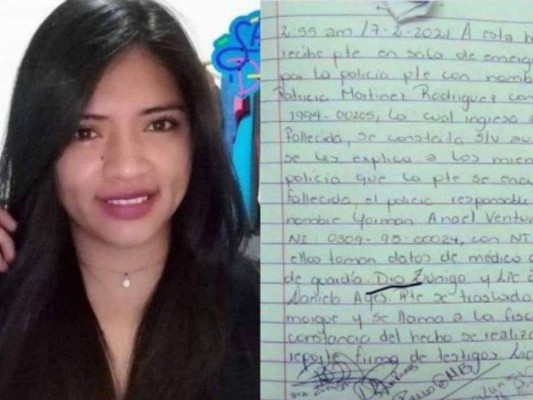 2:55 am /7-2-2021 A esta h
recibe pte en sala de emerg
por la policia pte con nomb
Patricia Martinez Rodriguez con
1994-00205, la cual ingresa
Fallecida, se constata s/v
se les explica a los miem
policia que la pte se encu
Fallecida, el policia responsable
nombre Yarman Anael Ventur
NI: 0309-95-00024, con NT
ellos toman datos de médico
de guardia Dra Zuniga y Lic
Daniela Pte se traslada
morgue y se llama a la fisc
constancia del hecho se realiz
reporte firma de testigos Lic